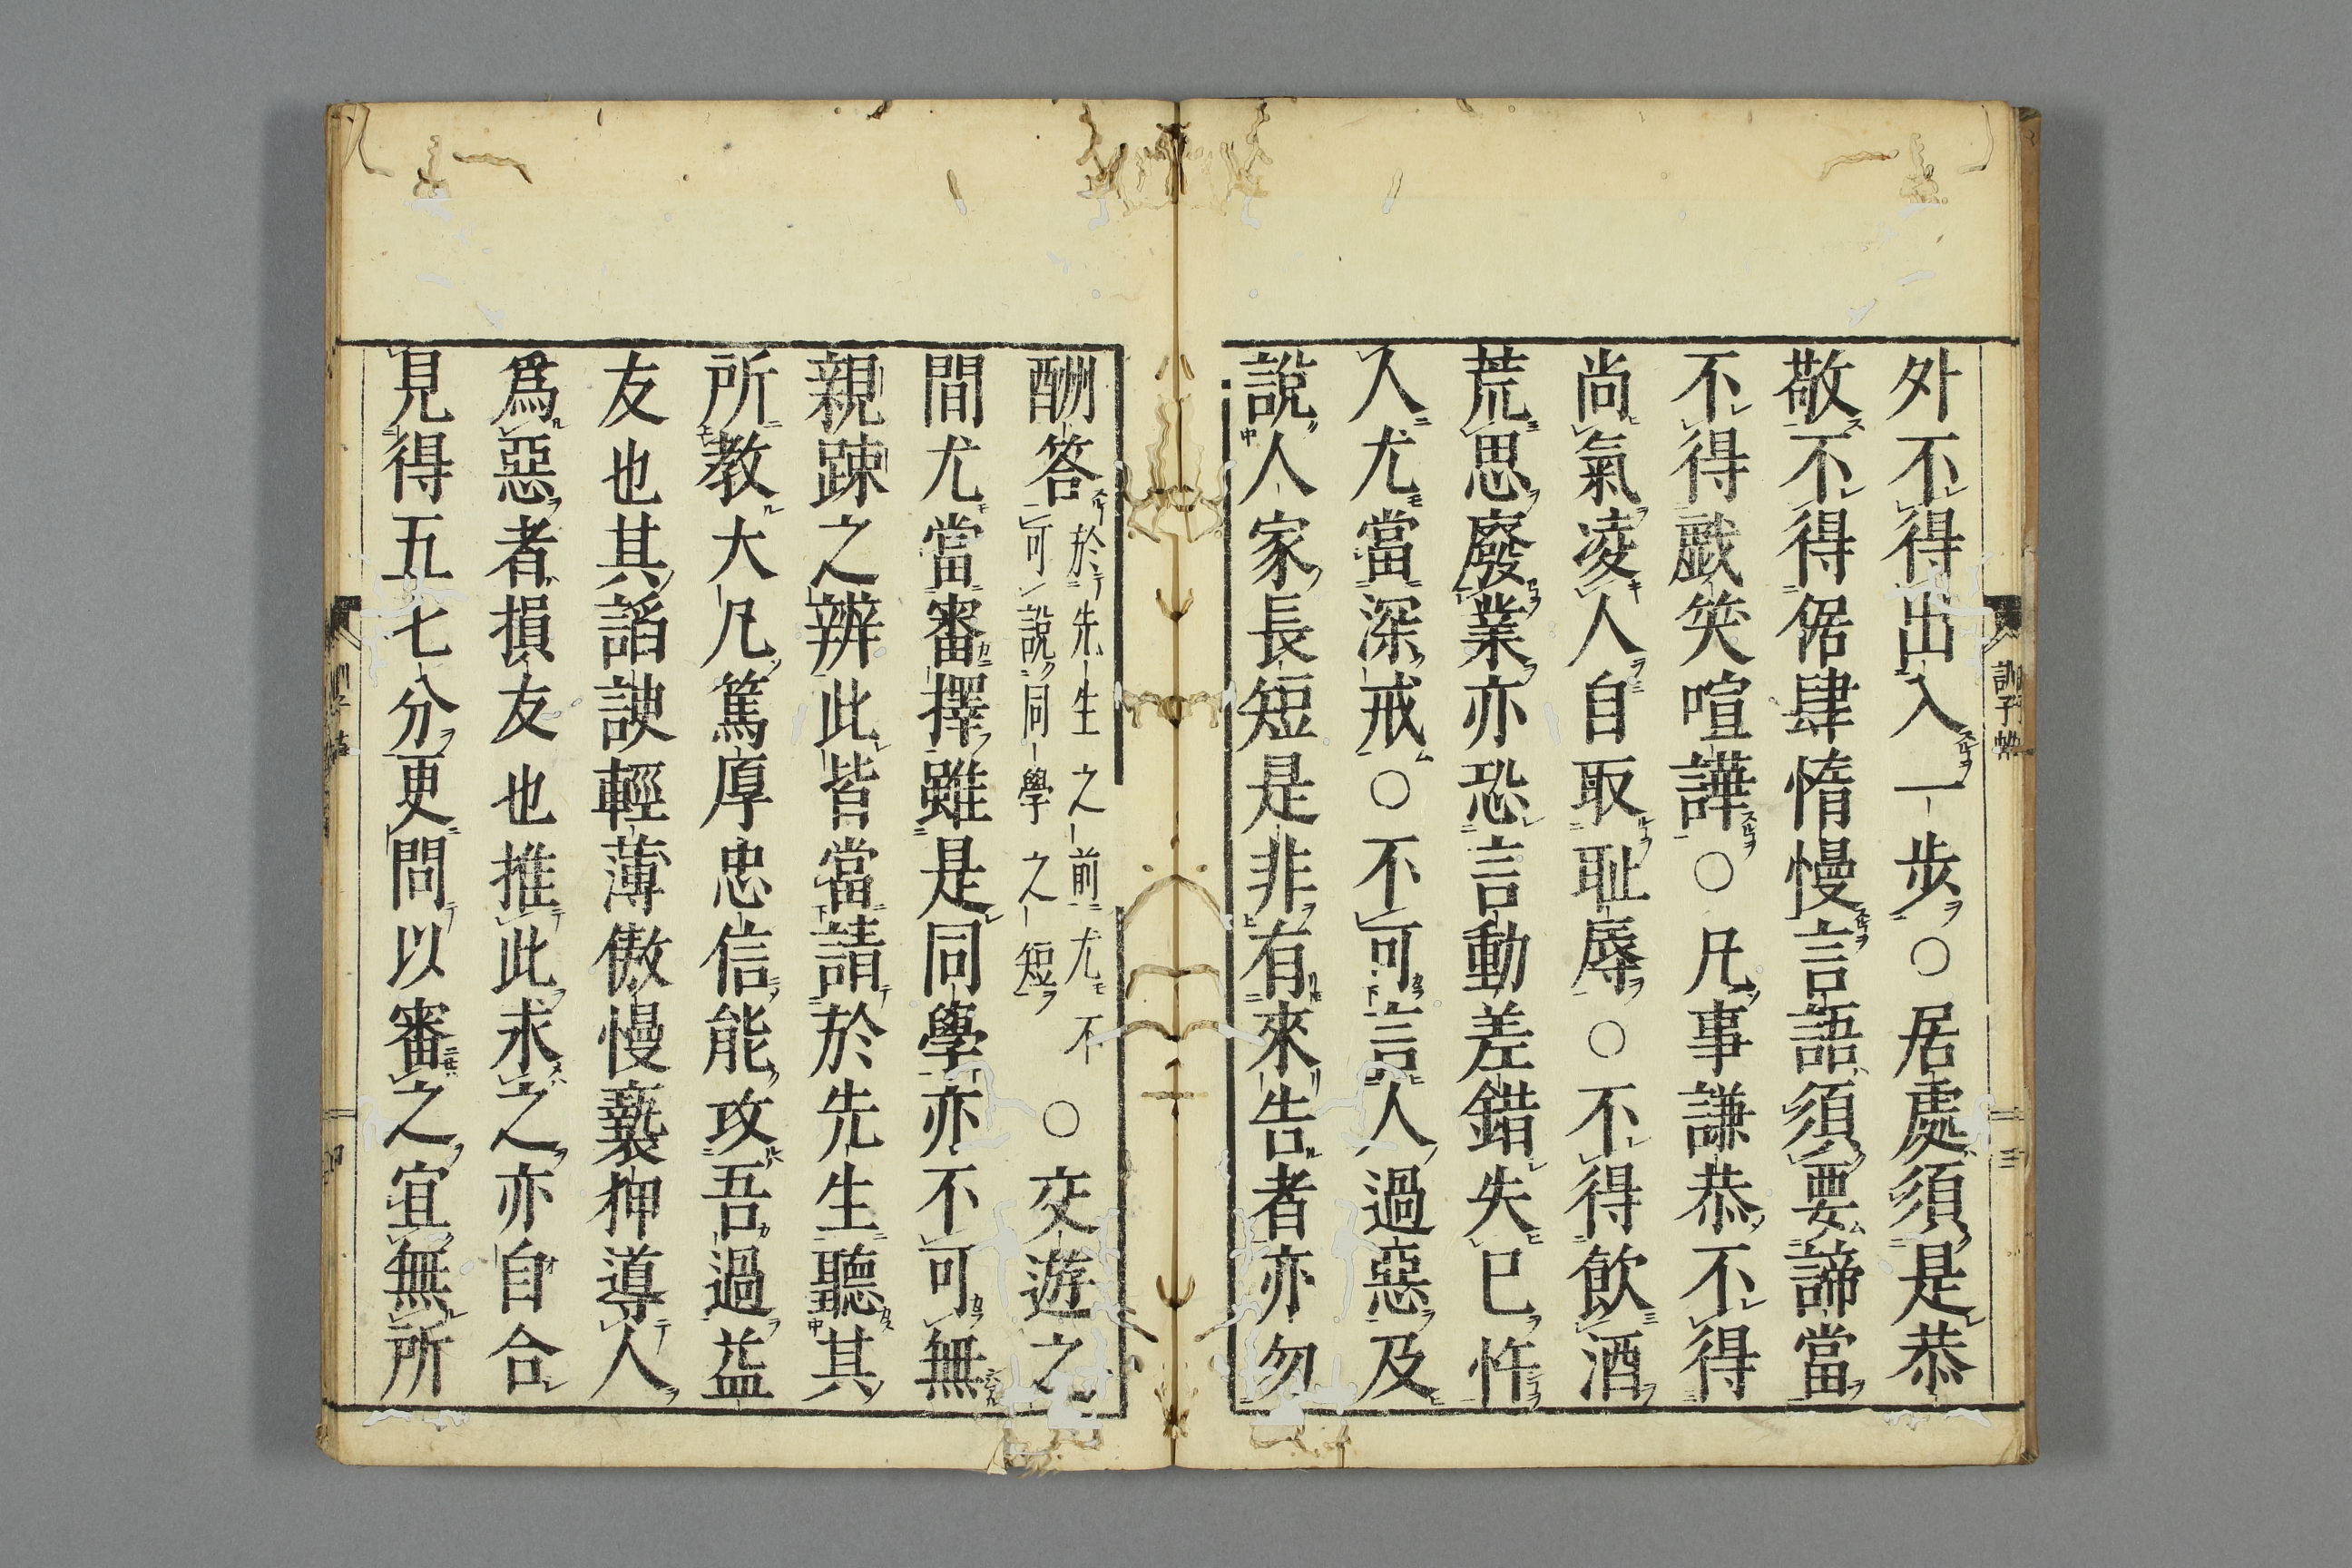 外不得出入一步○居處須是恭
敬不得倨肆惰慢言語須要諦當
不得戯笑喧譁○凡事謙恭不得
尚氣凌人自取耻辱○不得飲酒
荒思廢業亦恐言動差錯失已忤
人尤當深戒○不可言人過惡及
說人家長短是非有來告者亦勿
酬答於先生之前尤不可說同學之短○交遊之
間尤當審擇雖是同學亦不可無
親踈之辨此皆當請於先生聽其
所教大凡篤厚忠信能攻吾過益
友也其謟諛輕薄傲慢褻狎導人
爲惡者損友也推此求之亦自合
見得五七分更問以審之宜無所
訓子帖
三